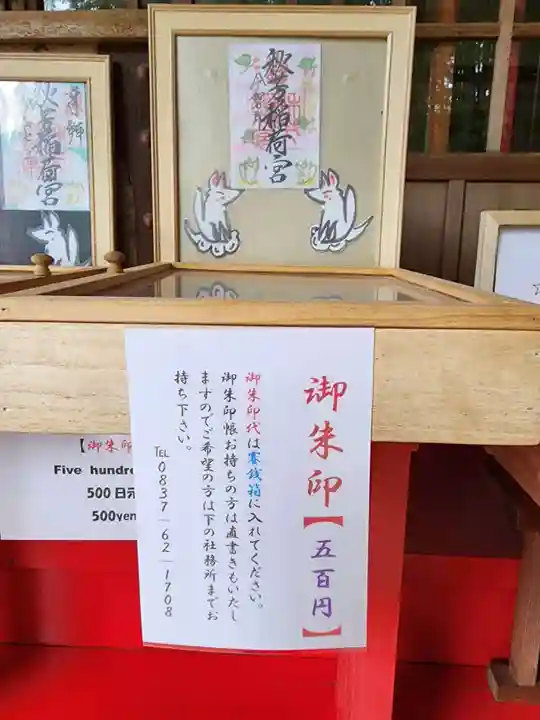 奉拝
秋吉稲荷宮
秋吉稲荷宮
御朱印【五百円】
御朱印代は賽銭箱に入れてください。
御朱印帳お持ちの方は直書きもいたし
ますのでご希望の方は下の社務所までお
持ち下さい。
TEL 0837―62―1708
【御朱印
Five hundre
500日元
500yen